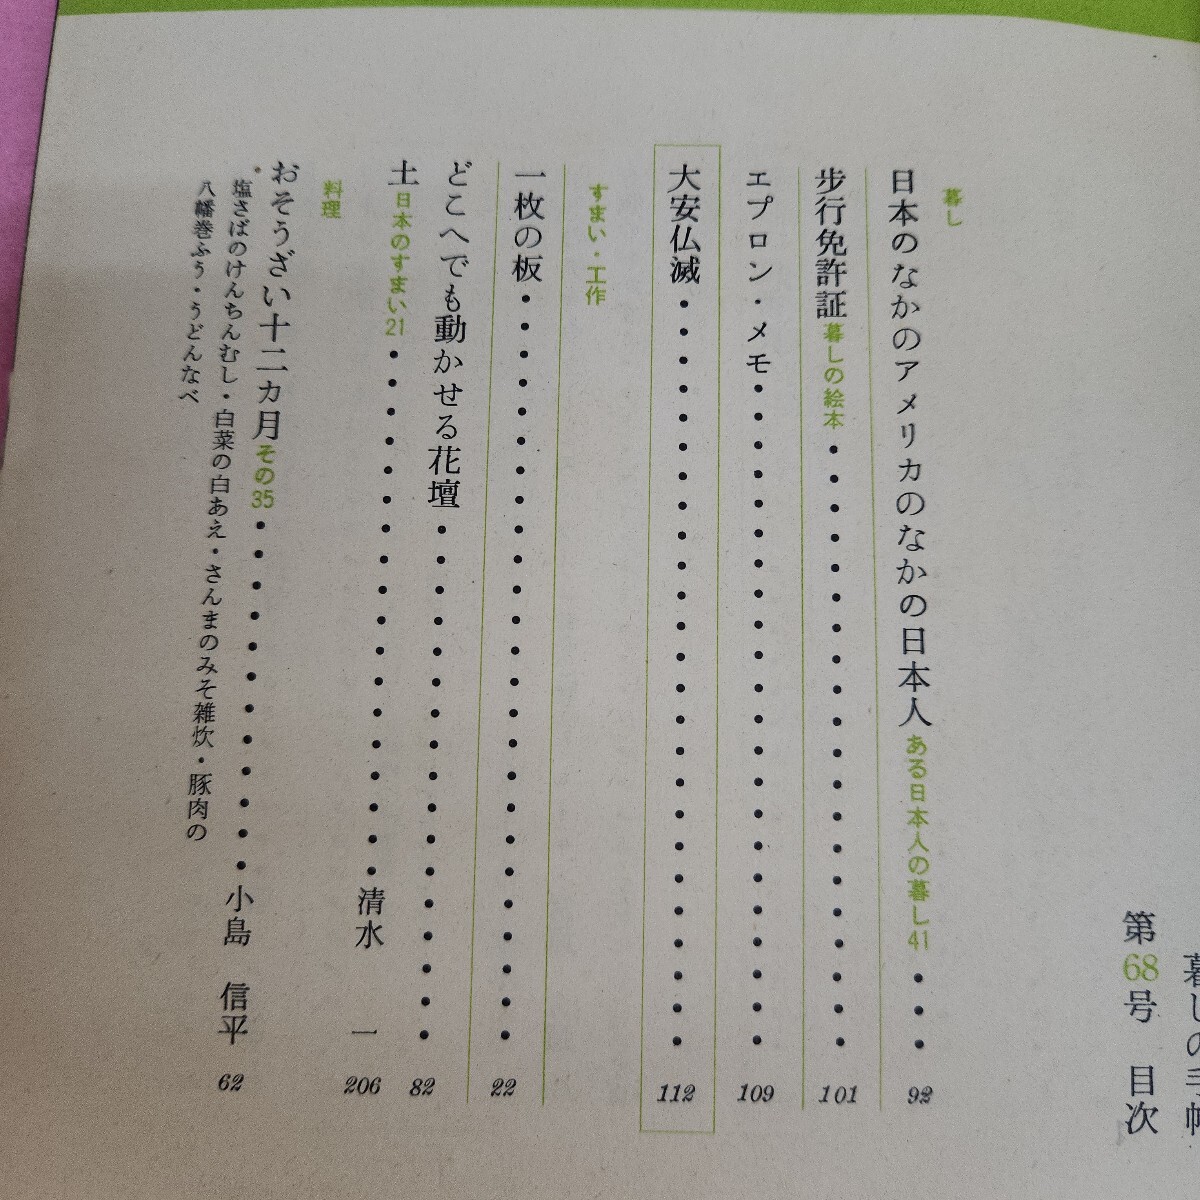 暮しの手帖
第68号 目次
暮し
日本のなかのアメリカのなかの日本人 ある日本人の暮し41・・・92
歩行免許証 暮しの絵本・・・・・・・・・・・・・・・・・・・・101
エプロン・メモ・・・・・・・・・・・・・・・・・・・・・・109
大安仏滅・・・・・・・・・・・・・・・・・・・・・・・・・112
すまい・工作
一枚の板・・・・・・・・・・・・・・・・・・・・・・・・・22
どこへでも動かせる花壇・・・・・・・・・・・・・・・・・82
土 日本のすまい21・・・・・・・・・・・・・・・・・・清水 一 206
料理
おそうざい十二カ月 その35・・・・・・・・・・・・小島 信平 62
塩さばのけんちんむし・白菜の白あえ・さんまのみそ雑炊・豚肉の
八幡巻ふう・うどんなべ